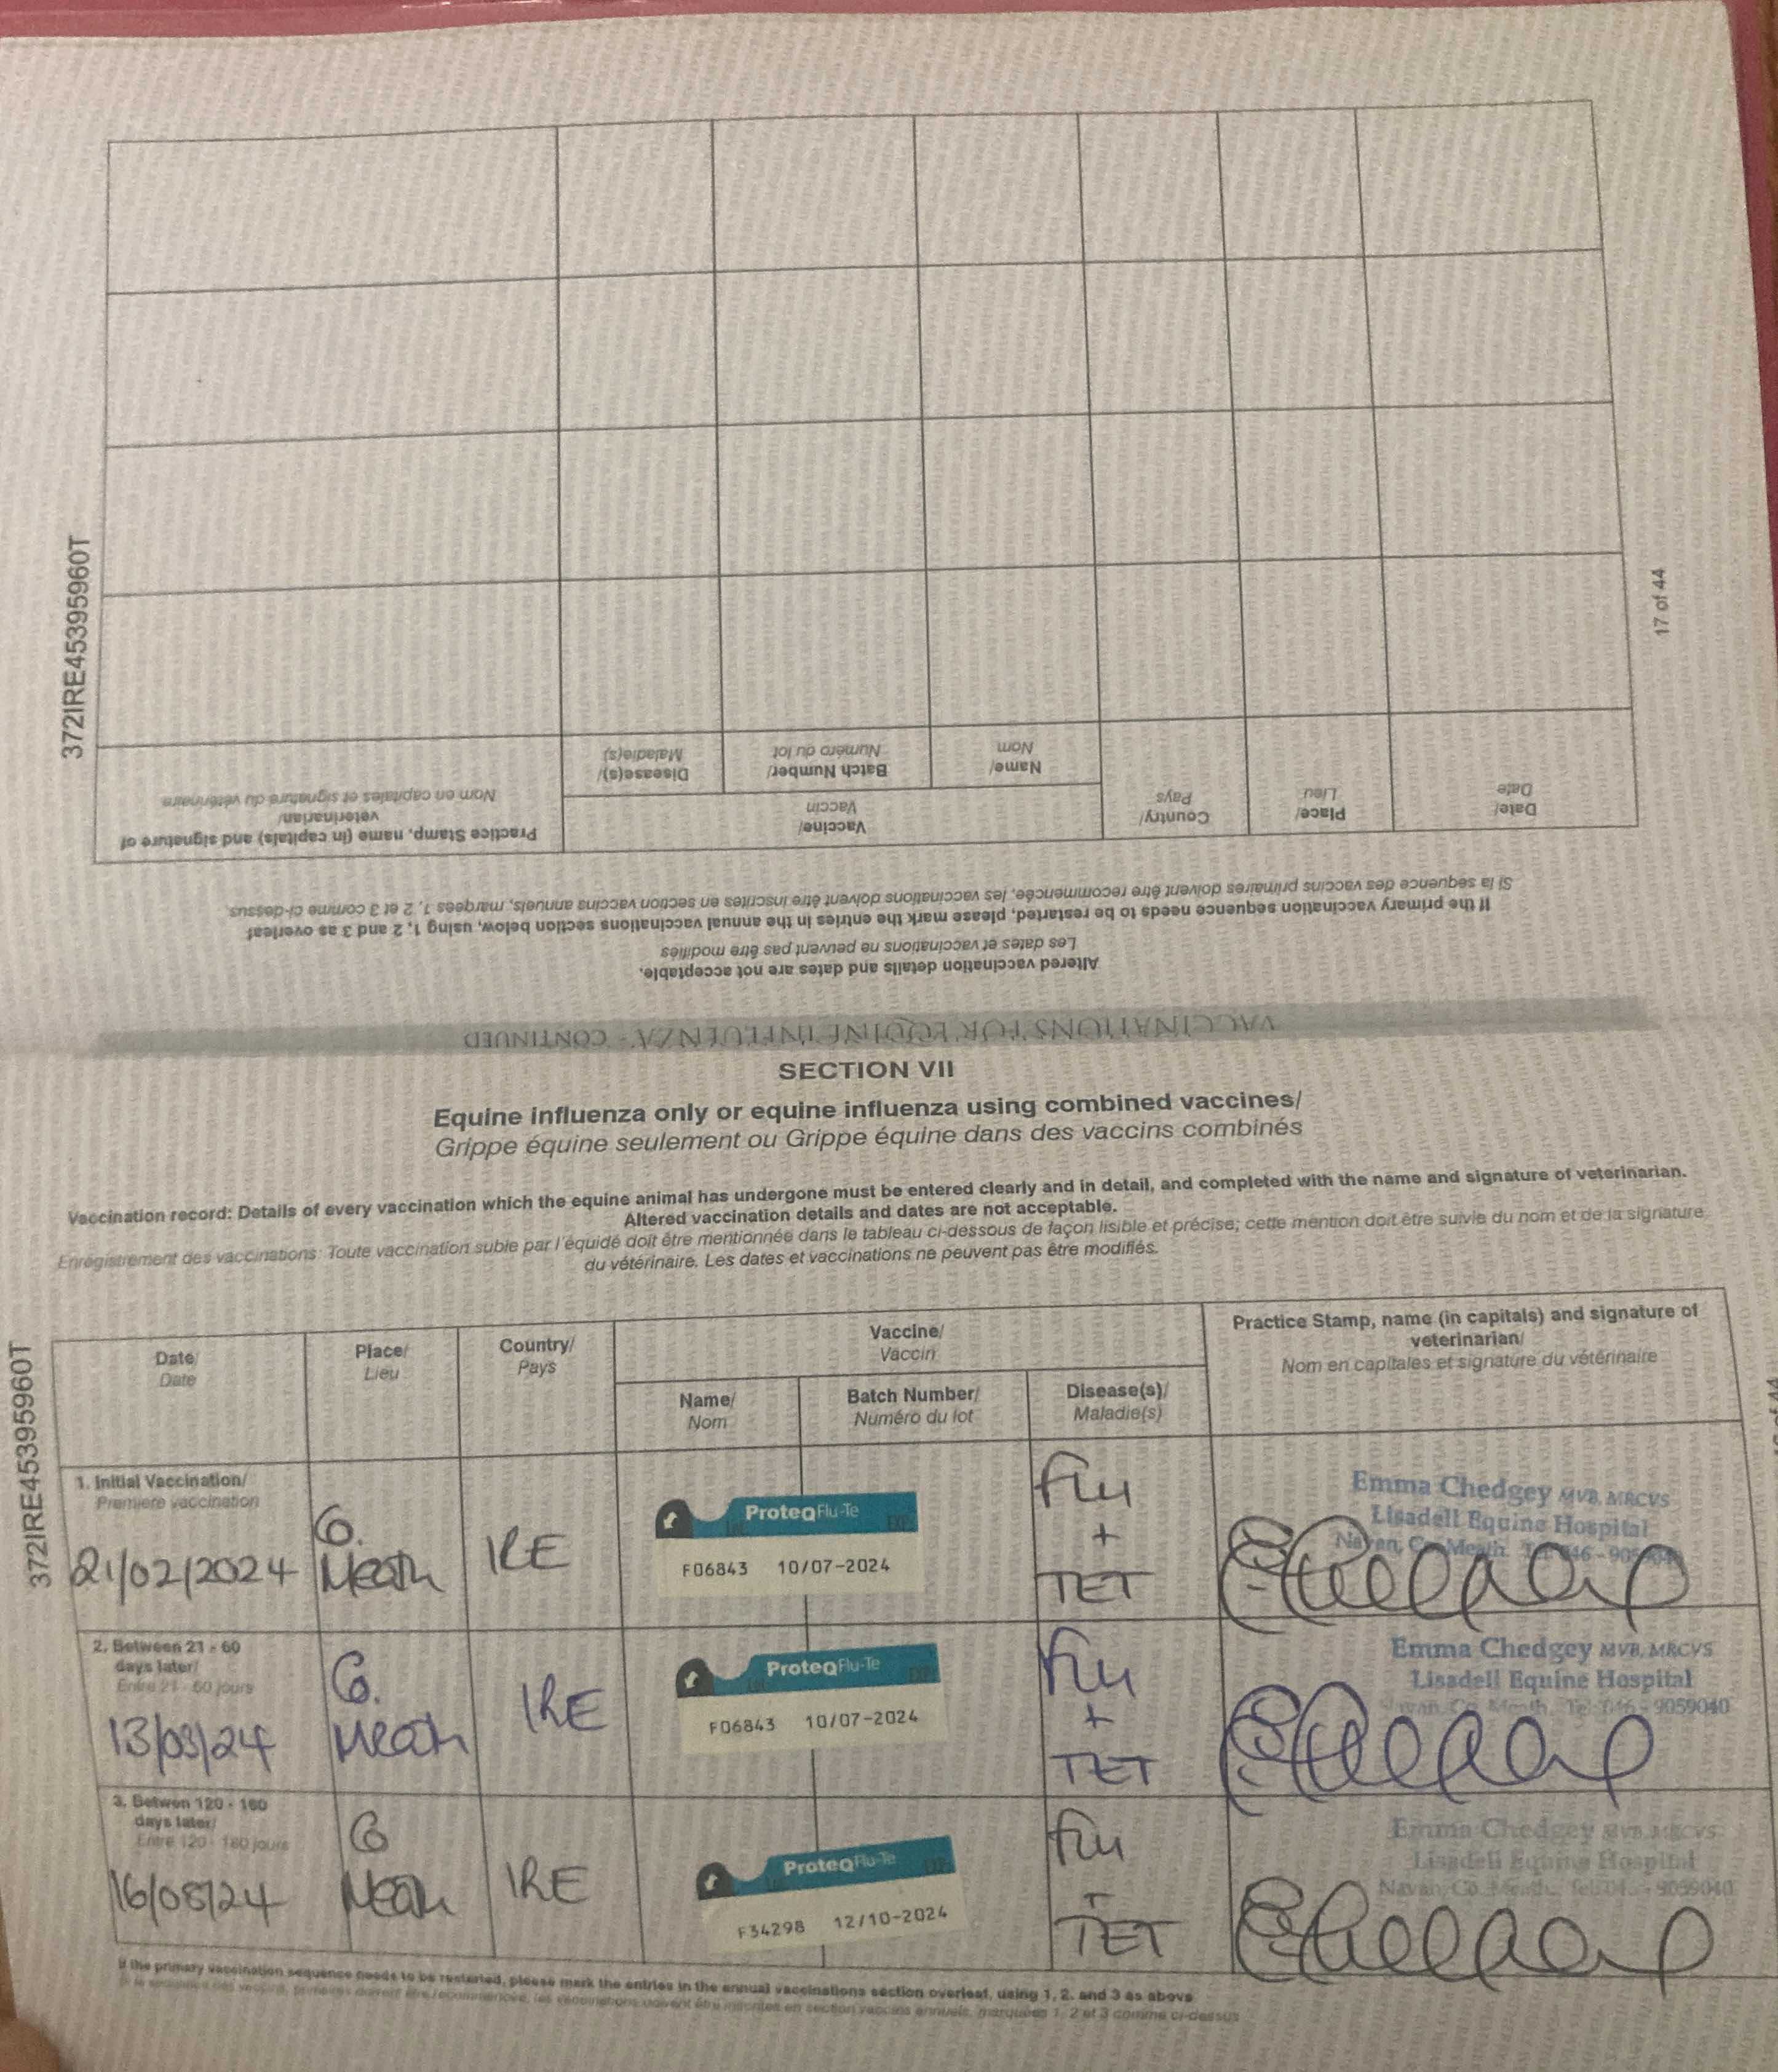 372IRE45395960T
17 of 44
VACCINATIONS FOR EQUINE INFLUENZA - CONTINUED
Altered vaccination details and dates are not acceptable.
Les dates et vaccinations ne peuvent pas être modifiés
If the primary vaccination sequence needs to be restarted, please mark the entries in the annual vaccinations section below, using 1, 2 and 3 as overleaf
Si la séquence des vaccins primaires doivent être recommencée, les vaccinations doivent être inscrites en section vaccins annuels, marquées 1, 2 et 3 comme ci-dessus.
Date/
Date
Place/
Lieu
Country/
Pays
Vaccine/
Vaccin
Name/
Nom
Batch Number/
Numéro du lot
Disease(s)/
Maladie(s)
Practice Stamp, name (in capitals) and signature of
veterinarian/
Nom en capitales et signature du vétérinaire
SECTION VII
Equine influenza only or equine influenza using combined vaccines/
Grippe équine seulement ou Grippe équine dans des vaccins combinés
Vaccination record: Details of every vaccination which the equine animal has undergone must be entered clearly and in detail, and completed with the name and signature of veterinarian.
Altered vaccination details and dates are not acceptable.
Enregistrement des vaccinations: Toute vaccination subie par l'équidé doit être mentionnée dans le tableau ci-dessous de façon lisible et précise; cette mention doit être suivie du nom et de la signature
du vétérinaire. Les dates et vaccinations ne peuvent pas être modifiés.
372IRE45395960T
Date/
Date
Place/
Lieu
Country/
Pays
Vaccine/
Vaccin
Name/
Nom
Batch Number/
Numéro du lot
Disease(s)/
Maladie(s)
Practice Stamp, name (in capitals) and signature of
veterinarian/
Nom en capitales et signature du vétérinaire
1. Initial Vaccination/
Premiere vaccination
21/02/2024
Co.
Meath
IRE
ProteqFlu-Te
Lot EXP
F06843 10/07-2024
Flu
+
TET
Emma Chedgey MVB, MRCVS
Lisadell Equine Hospital
Navan, Co. Meath.
2. Between 21 - 60
days later/
Entre 21 - 60 jours
13/03/24
Co.
Meath
IRE
ProteqFlu-Te
Lot EXP
F06843 10/07-2024
Flu
+
TET
Emma Chedgey MVB, MRCVS
Lisadell Equine Hospital
Navan, Co. Meath. Tel: 046 - 9059040
3. Betwen 120 - 180
days later/
Entre 120 - 180 jours
16/08/24
Co
Meath
IRE
ProteqFlu-Te
F34298 12/10-2024
Flu
+
TET
Emma Chedgey MVB, MRCVS
Lisadell Equine Hospital
Navan, Co. Meath. Tel: 046 - 9059040
If the primary vaccination sequence needs to be restarted, please mark the entries in the annual vaccinations section overleaf, using 1, 2, and 3 as above